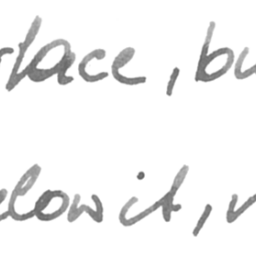 face, bu
elow it,